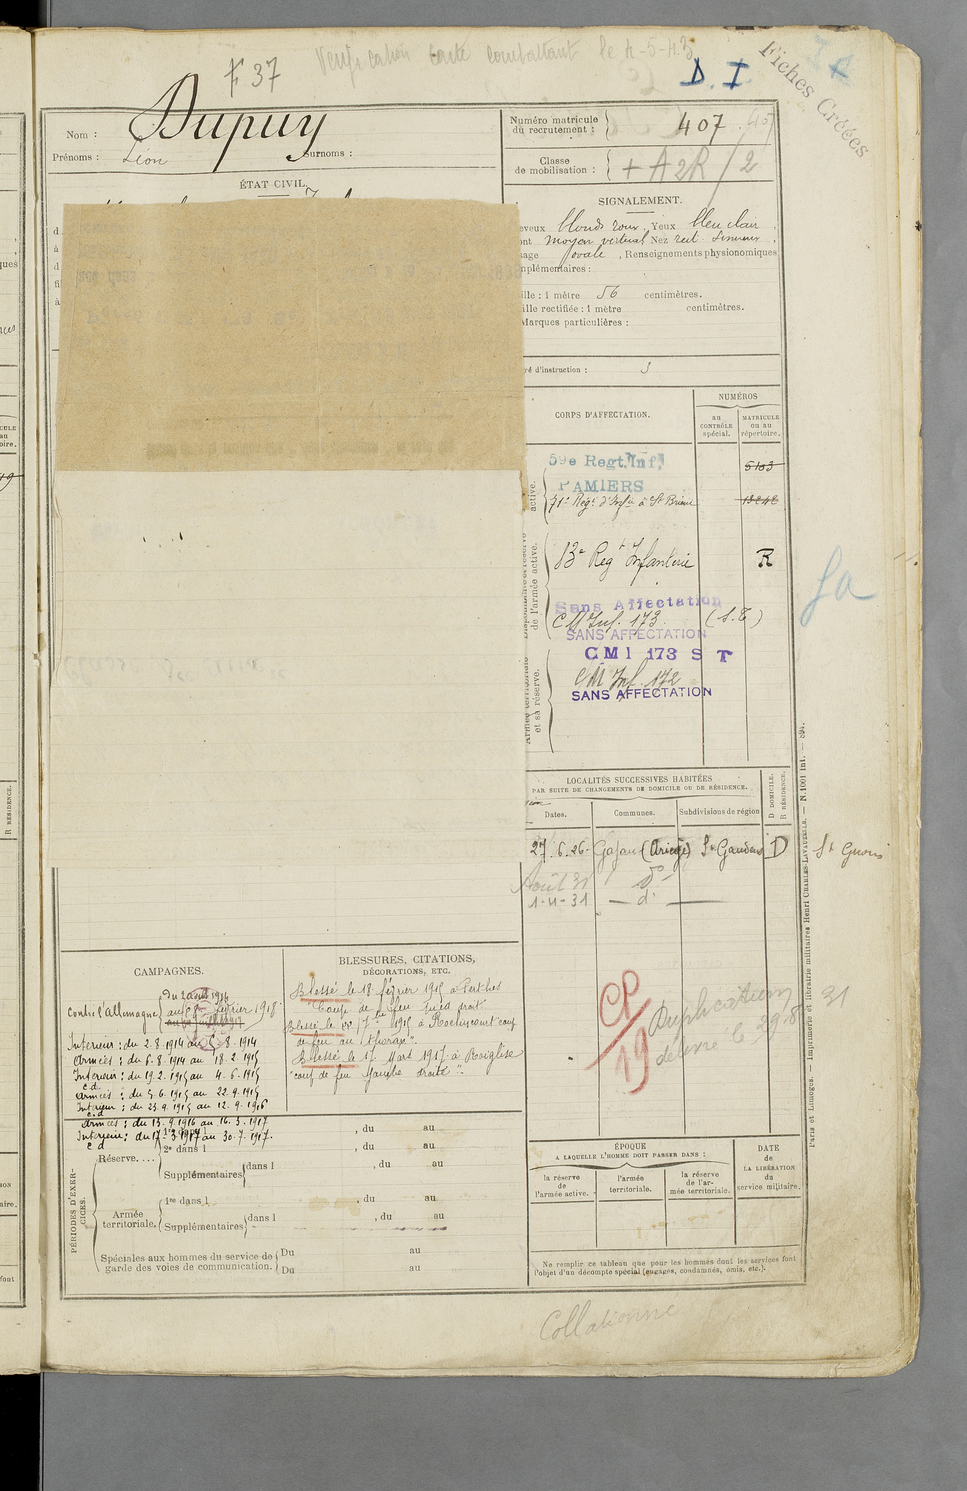 F 37
Verification carte combattant le 4-5-43
D. I
Fiches Créées
Nom : Dupuy
Prénoms : Léon Surnoms :
Numéro matricule du recrutement : 407
Classe de mobilisation : + A 2R / 2
ÉTAT CIVIL.
SIGNALEMENT.
eveux blonds roux, Yeux bleu clair,
ont moyen vertical Nez rect. sinueux,
age ovale, Renseignements physionomiques
mplémentaires :
ille : 1 mètre 56 centimètres.
ille rectifiée : 1 mètre centimètres.
Marques particulières :
ré d'instruction : 3
CORPS D'AFFECTATION.
NUMÉROS
au CONTRÔLE spécial.
MATRICULE ou au répertoire.
59e Regt. Inf.
PAMIERS
71e Regt d'Infie à St Brieuc
83e Regt Infanterie R
Sans Affectation
C M Inf. 173. (S.T)
SANS AFFECTATION
CMI 173 S T
CM Inf. 172
SANS AFFECTATION
active.
de l'armée active.
Armée territoriale et sa réserve.
LOCALITÉS SUCCESSIVES HABITÉES
PAR SUITE DE CHANGEMENTS DE DOMICILE OU DE RÉSIDENCE.
Dates. Communes. Subdivisions de région
D DOMICILE. R RÉSIDENCE.
27.6.26 Gajan (Ariège) St Gaudens D St Girons
Août 31 d°
1-11-31 — d° —
CP/19
Duplication 31
délivré le 29.8
CAMPAGNES.
Contre l'Allemagne du 2 août 1914
au février 1918
Intérieur : du 2.8.1914 au 5.8.1914
Armées : du 6.8.1914 au 18.2.1915
Intérieur : du 19.2.1915 au 4.6.1915
c.d.
Armées : du 5.6.1915 au 22.9.1915
Intérieur : du 23.9.1915 au 12.9.1916
c.d
Armées : du 13.9.1916 au 16.3.1917
Intérieur : du 17.3.1917 au 30.7.1917.
c d
BLESSURES, CITATIONS,
DÉCORATIONS, ETC.
Blessé le 18 février 1915 à Perthes
"Coup de feu pied droit"
Blessé le 1915 à Roclincourt "coup
de feu au thorax".
Blessé le 17 Mars 1917 à Roiglise
"coup de feu jambe droite".
PÉRIODES D'EXERCICES.
, du au
2e dans l , du au
Réserve....
Supplémentaires dans l , du au
Armée territoriale.
1re dans l , du au
Supplémentaires dans l , du au
Spéciales aux hommes du service de garde des voies de communication.
Du au
Du au
ÉPOQUE
A LAQUELLE L'HOMME DOIT PASSER DANS :
la réserve de l'armée active.
l'armée territoriale.
la réserve de l'armée territoriale.
DATE de LA LIBÉRATION du service militaire.
Ne remplir ce tableau que pour les hommes dont les services font
l'objet d'un décompte spécial (engagés, condamnés, omis, etc.).
Paris et Limoges. — Imprimerie et librairie militaires Henri CHARLES-LAVAUZELLE. — N. 1001 Int. — 894.
Collationné